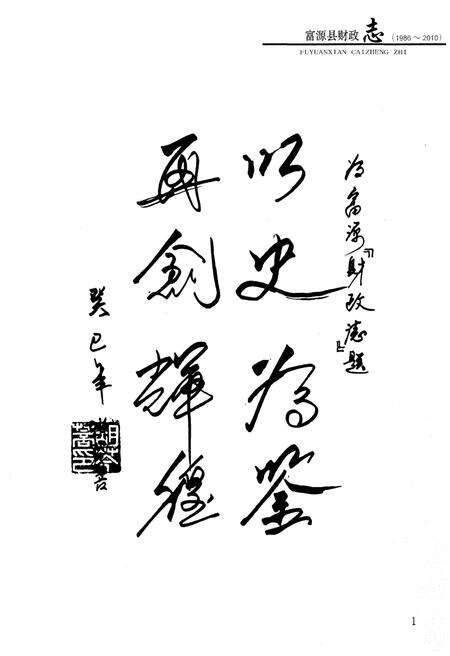 富源县财政志（1986～2010）
FUYUANXIAN CAIZHENG ZHI
为富源『财政志』题
以史为鉴
再創輝煌
癸巳年
1